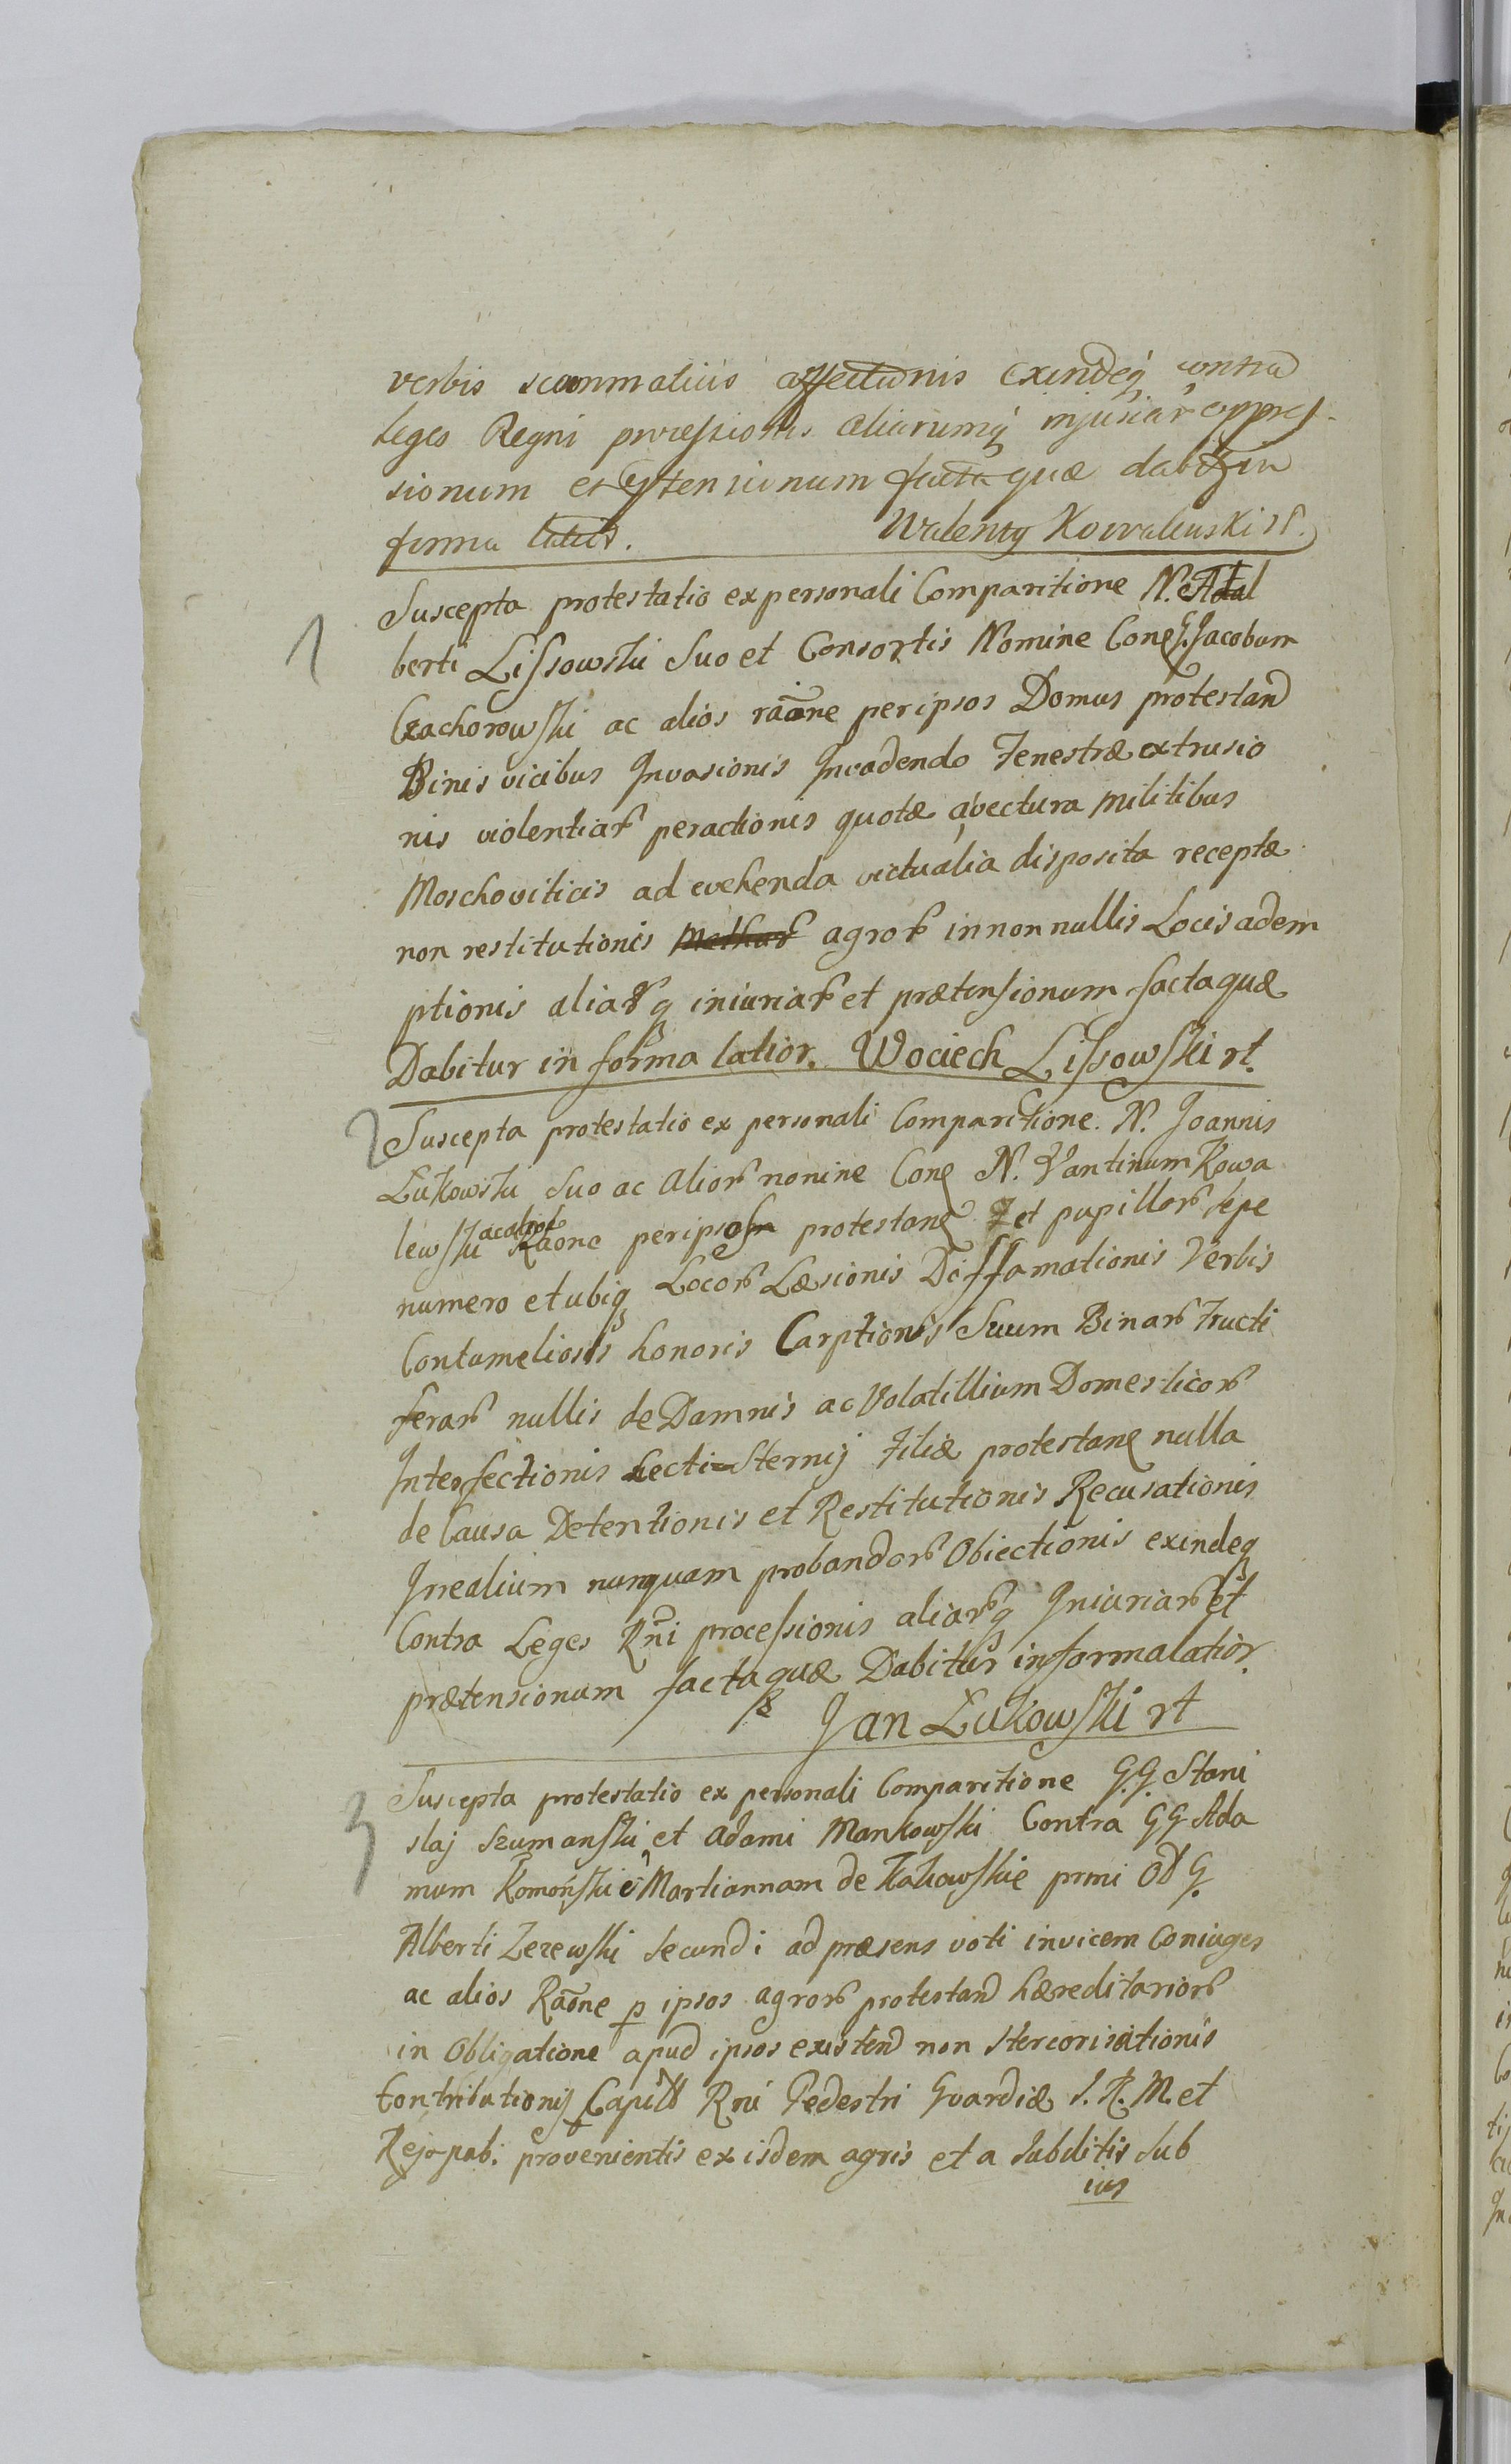 verbis scommaticis affectionis exindeq contra
Leges Regni processionis aliarumq injuriar oppres-
sionum et prætensionum facta quæ dabitur in
forma latiori. Walenty Kowalewski rt.
1 Suscepta protestatio ex personali Comparitione N. Adal
berti Lissowski Suo et Consortis Nomine Conq G. Jacobum
Czachorowski ac alios raõne per ipsos Domus protestand
Binis vicibus Invasionis Invadendo Fenestræ extrusio
nis violentiar peractionis quotæ a vectura Militibus
Moschoviticis ad evehenda victualia disposita receptæ
non restitutionis agror in non nullis Locis adem
ptionis aliarq iniuriar et prætensionum facta quæ
Dabitur in forma latior. Wociech Lissowski rt.
2 Suscepta protestatio ex personali Comparitione. N. Joannis
Łukowski Suo ac alior nomine Conq N. Vantinum Kowa
lewski ac alios Raõne per ipsosm protestanq et pupillor sepe
numero et ubiq Locor Læsionis Diffamationis Verbis
Contumeliosis honoris Carptionis Suum Binar Fructi
ferar nullis de Damnis ac Volatillium Domesticor
Interfectionis Lecti-Sternij Filiæ protestanq nulla
de Causa Detentionis et Restitutionis Recusationis
Inealium nunquam probandor Obiectionis exindeq
Contra Leges Rñi processionis aliarq Iniuriar et
prætensionum facta quæ Dabitur in forma latior.
Jan Łukowski rt
3 Suscepta protestatio ex personali Comparitione G.G. Stani
slaj Szumanski et Adami Mankowski Contra GG Ada
mum Komoński et Martiannam de Kakowskie primi Od G.
Alberti Zerewski Secundi ad præsens voti invicem Coniuges
ac alios Raõne p ipsos agror protestand hæreditarior
in Obligatione apud ipsos existend non Stercorisationis
Contributionis Capitt Rni Pedestri Gvardiæ S. R. M. et
Rejpub: provenientis ex isdem agris et a Subditis Sub
ius